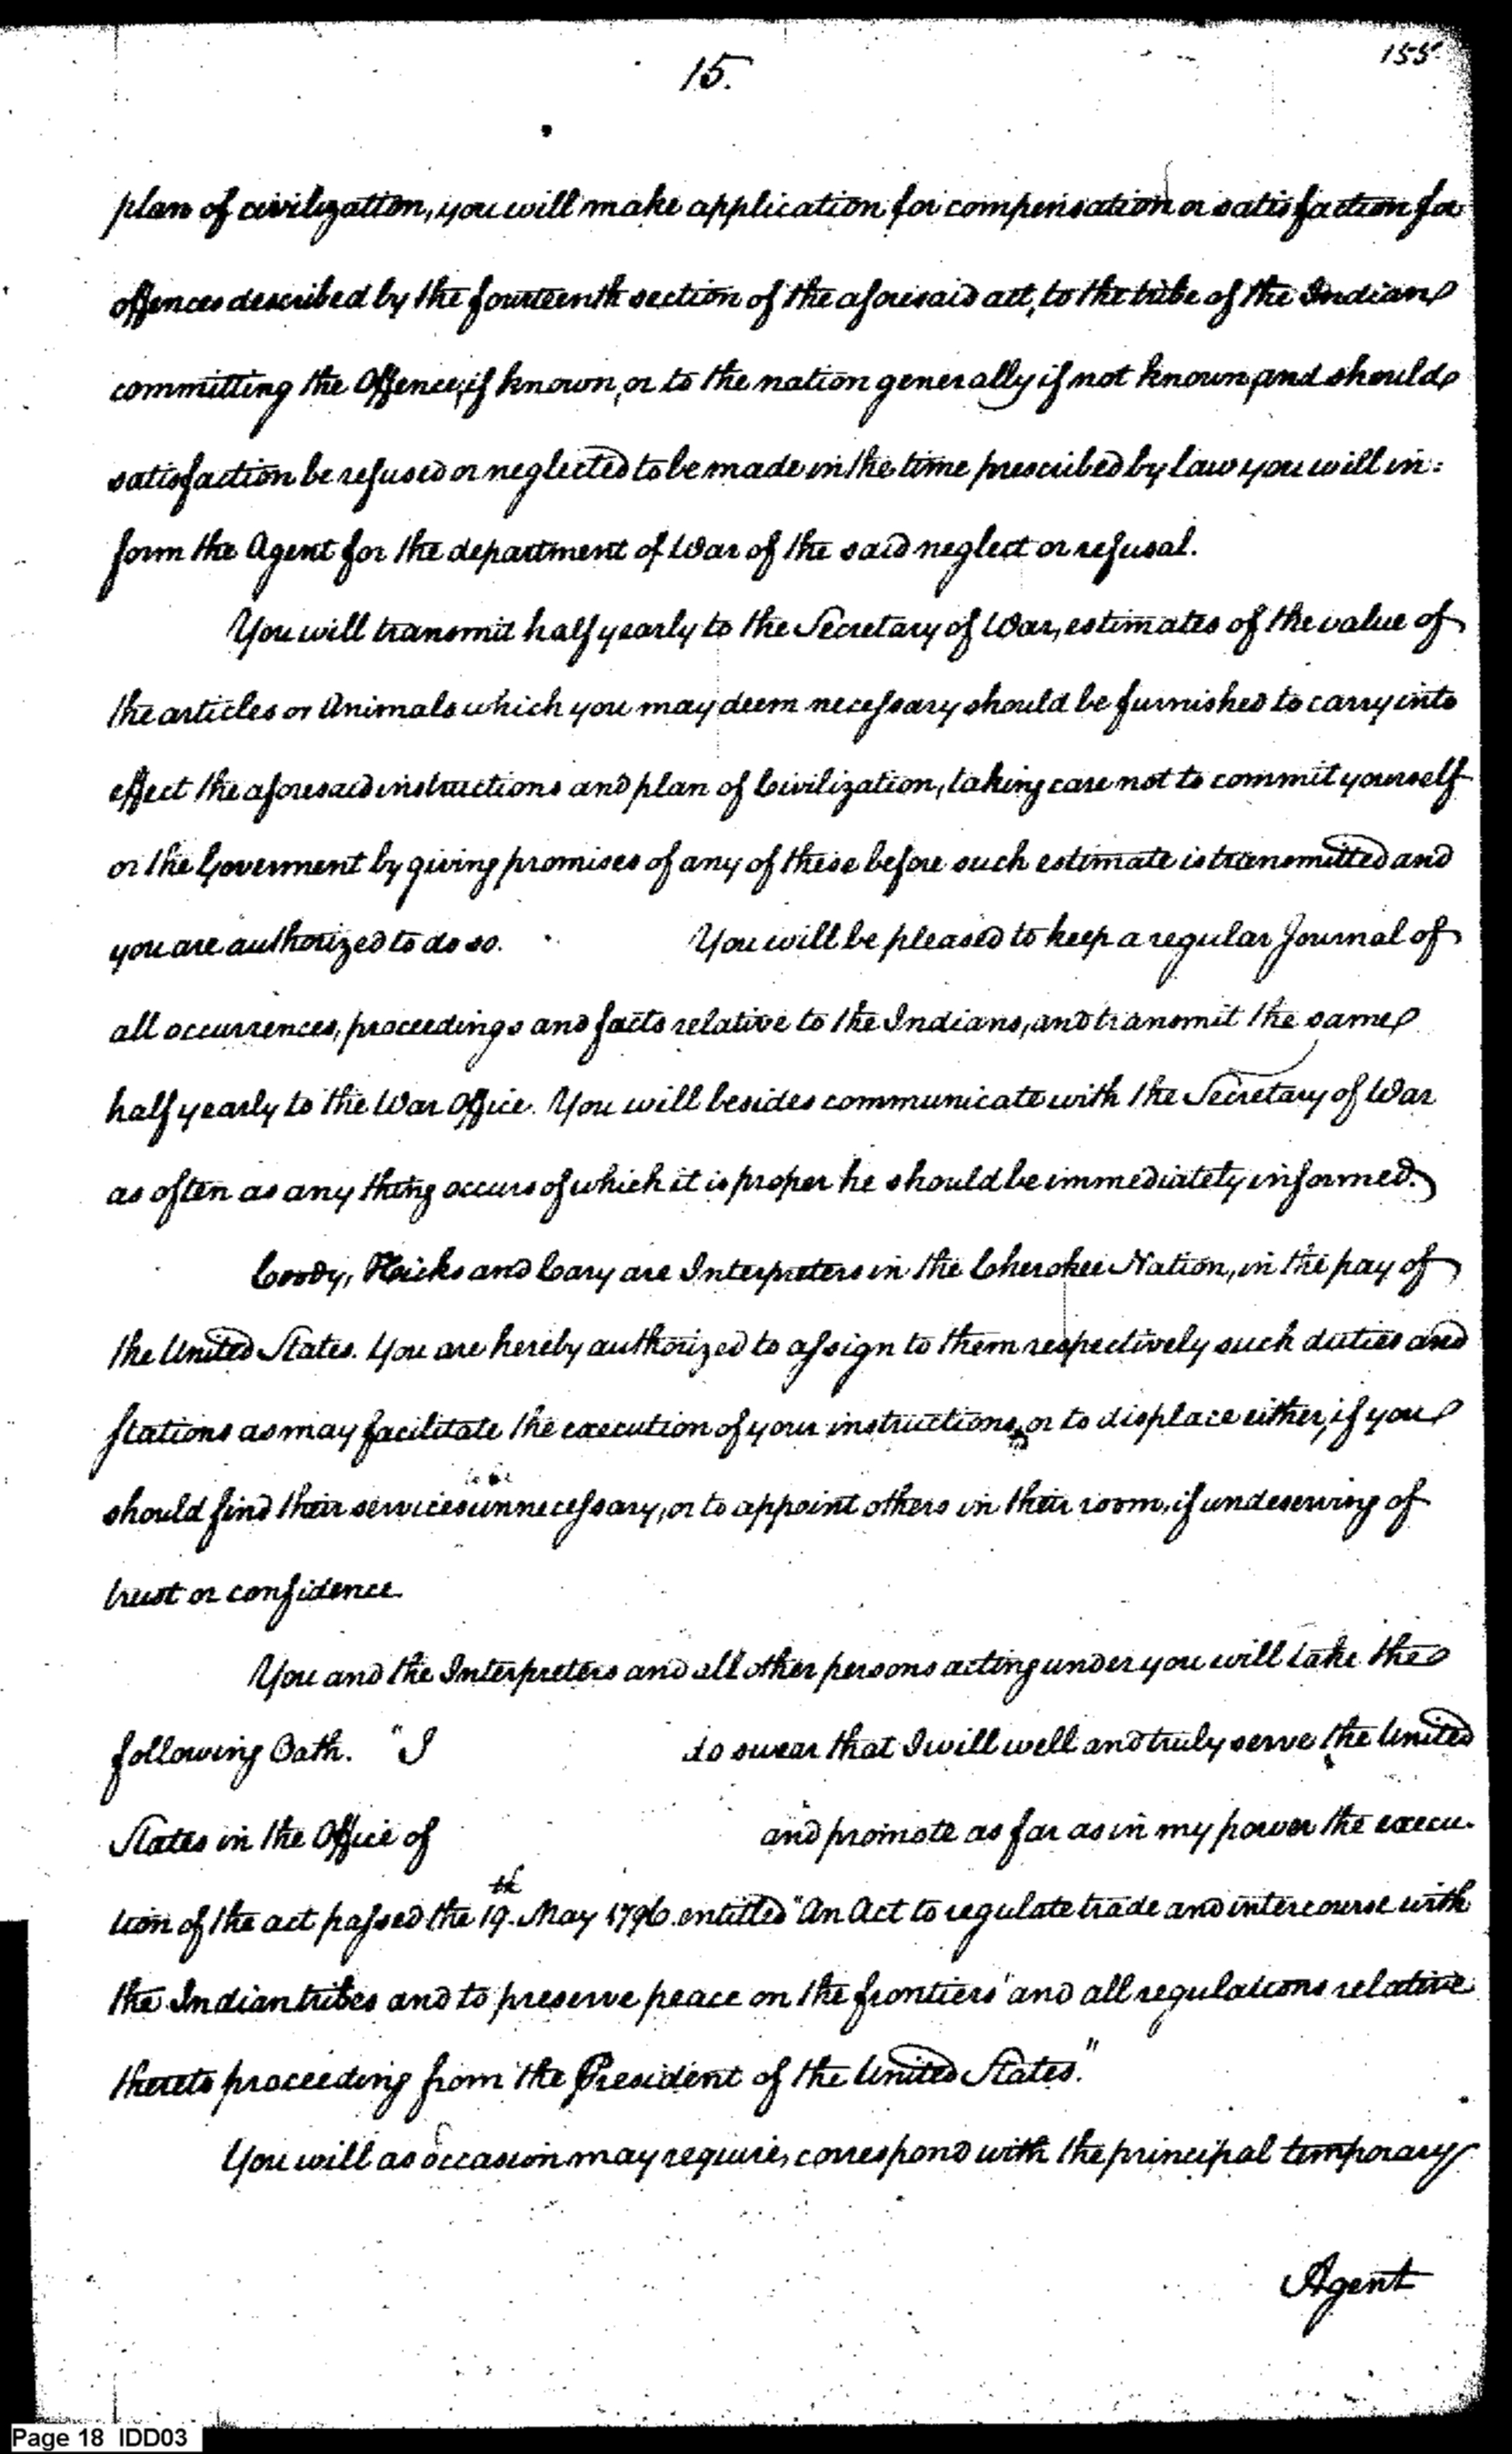 15.
155
plan of civilization, you will make application for compensation or satisfaction for
offences described by the fourteenth section of the aforesaid act, to the tribe of the Indian
committing the Offence, if known, or to the nation generally if not known, and should
satisfaction be refused or neglected to be made in the time prescribed by law you will in:
form the Agent for the department of War of the said neglect or refusal.
You will transmit half yearly to the Secretary of War, estimates of the value of
the articles or Animals which you may deem necessary should be furnished to carry into
effect the aforesaid instructions and plan of Civilization, taking care not to commit yourself
or the Goverment by giving promises of any of these before such estimate is transmitted and
you are authorized to do so. You will be pleased to keep a regular Journal of
all occurrences, proceedings and facts relative to the Indians, and transmit the same
half yearly to the War Office. You will besides communicate with the Secretary of War
as often as any thing occurs of which it is proper he should be immediately informed.
Coody, Hicks and Cary are Interpreters in the Cherokee Nation, in the pay of
the United States. You are hereby authorized to assign to them respectively such duties and
stations as may facilitate the execution of your instructions, or to displace either, if you
to be
should find their services unnecessary, or to appoint others in their room, if undeserving of
trust or confidence
You and the Interpreters and all other persons acting under you will take the
following Oath. "I do swear that I will well and truly serve the United
States in the Office of and promote as far as in my power the execu-
tion of the act passed the 19th. May 1796. entitled "An Act to regulate trade and intercourse with
the Indian tribes and to preserve peace on the frontiers" and all regulations relative
thereto proceeding from the President of the United States."
You will as occasion may require, correspond with the principal temporary
Agent
Page 18 IDD03